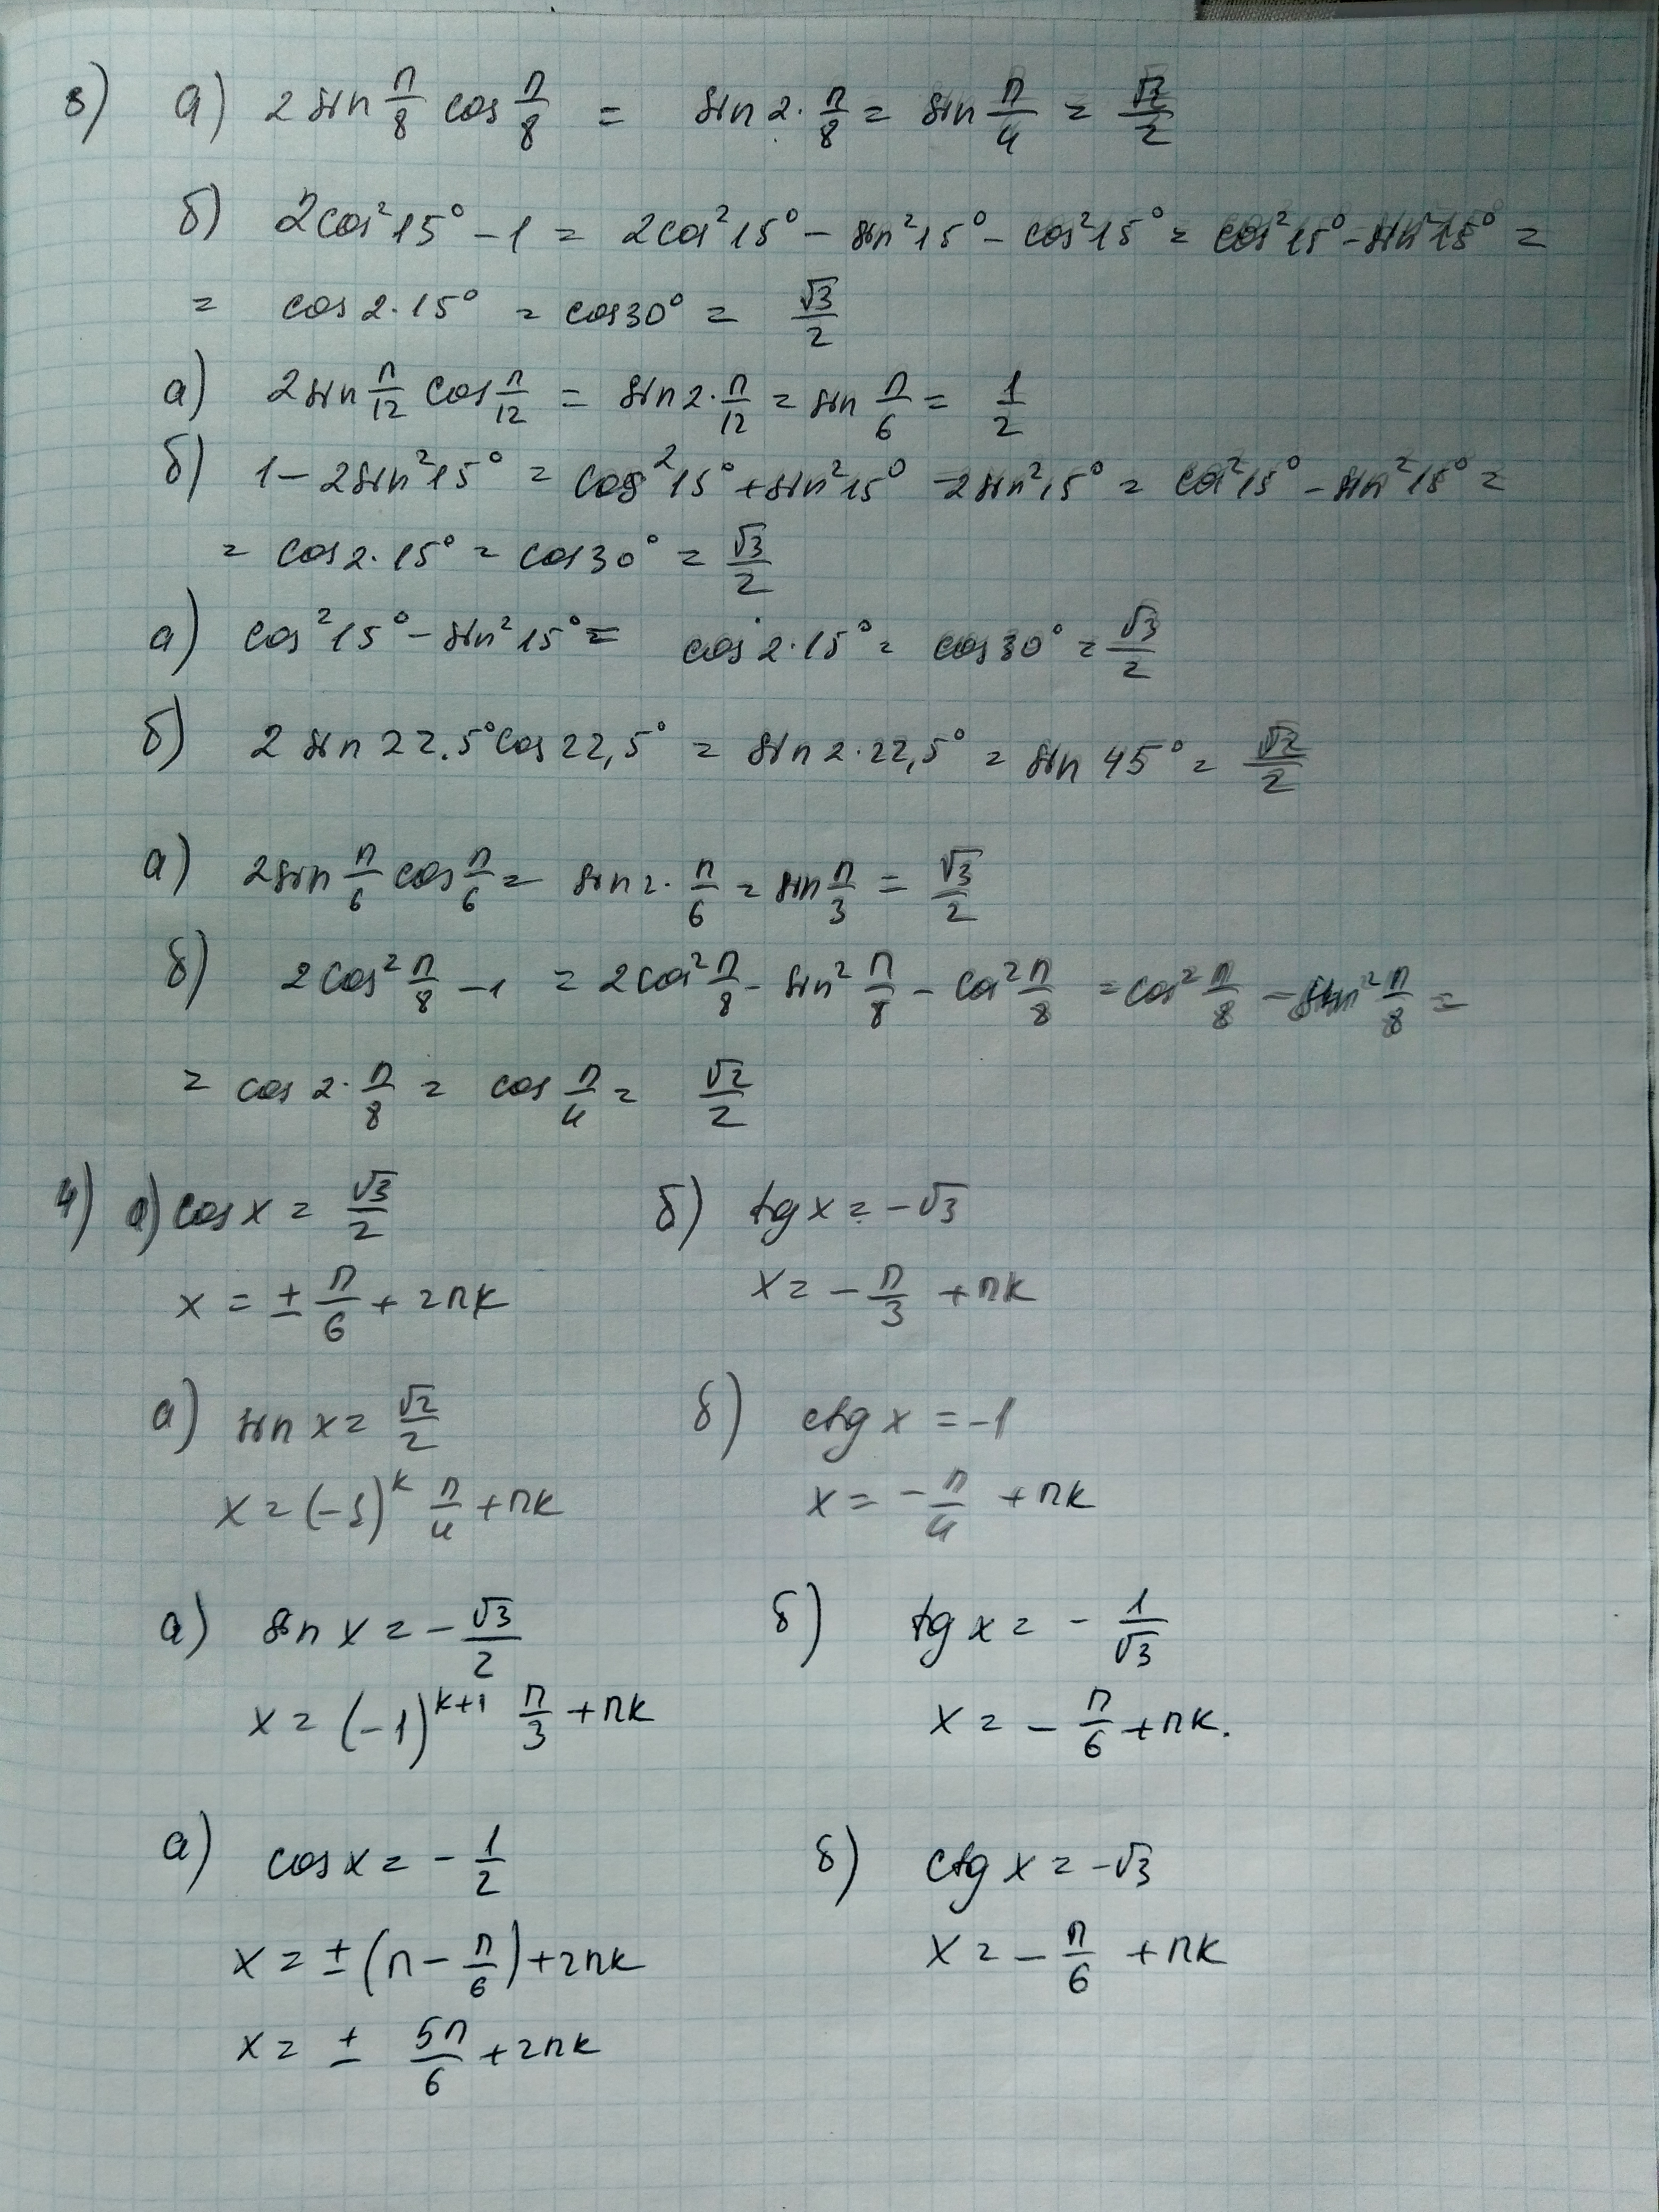 3) а) 2 sin π/8 cos π/8 = sin 2·π/8 = sin π/4 = √2/2
б) 2cos²15° - 1 = 2cos²15° - sin²15° - cos²15° = cos²15° - sin²15° =
= cos 2·15° = cos30° = √3/2
а) 2sin π/12 cos π/12 = sin 2·π/12 = sin π/6 = 1/2
б) 1 - 2sin²15° = cos²15° + sin²15° - 2sin²15° = cos²15° - sin²15° =
= cos 2·15° = cos30° = √3/2
а) cos²15° - sin²15° = cos 2·15° = cos 30° = √3/2
б) 2 sin 22.5° cos 22,5° = sin 2·22,5° = sin 45° = √2/2
а) 2sin π/6 cos π/6 = sin 2·π/6 = sin π/3 = √3/2
б) 2cos² π/8 - 1 = 2cos² π/8 - sin² π/8 - cos² π/8 = cos² π/8 - sin² π/8 =
= cos 2·π/8 = cos π/4 = √2/2
4) а) cos x = √3/2 б) tg x = -√3
x = ± π/6 + 2πk x = - π/3 + πk
а) sin x = √2/2 б) ctg x = -1
x = (-1)^k π/4 + πk x = - π/4 + πk
а) sin x = - √3/2 б) tg x = - 1/√3
x = (-1)^(k+1) π/3 + πk x = - π/6 + πk.
а) cos x = - 1/2 б) ctg x = -√3
x = ± (π - π/6) + 2πk x = - π/6 + πk
x = ± 5π/6 + 2πk